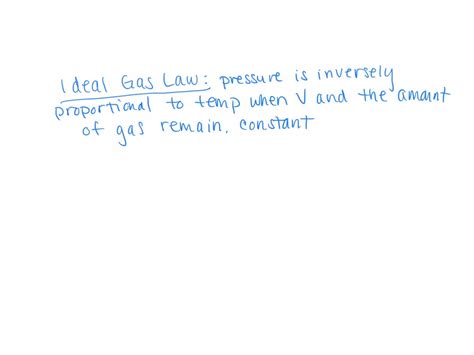 Ideal Gas Law: pressure is inversely
proportional to temp when V and the amount
of gas remain, constant